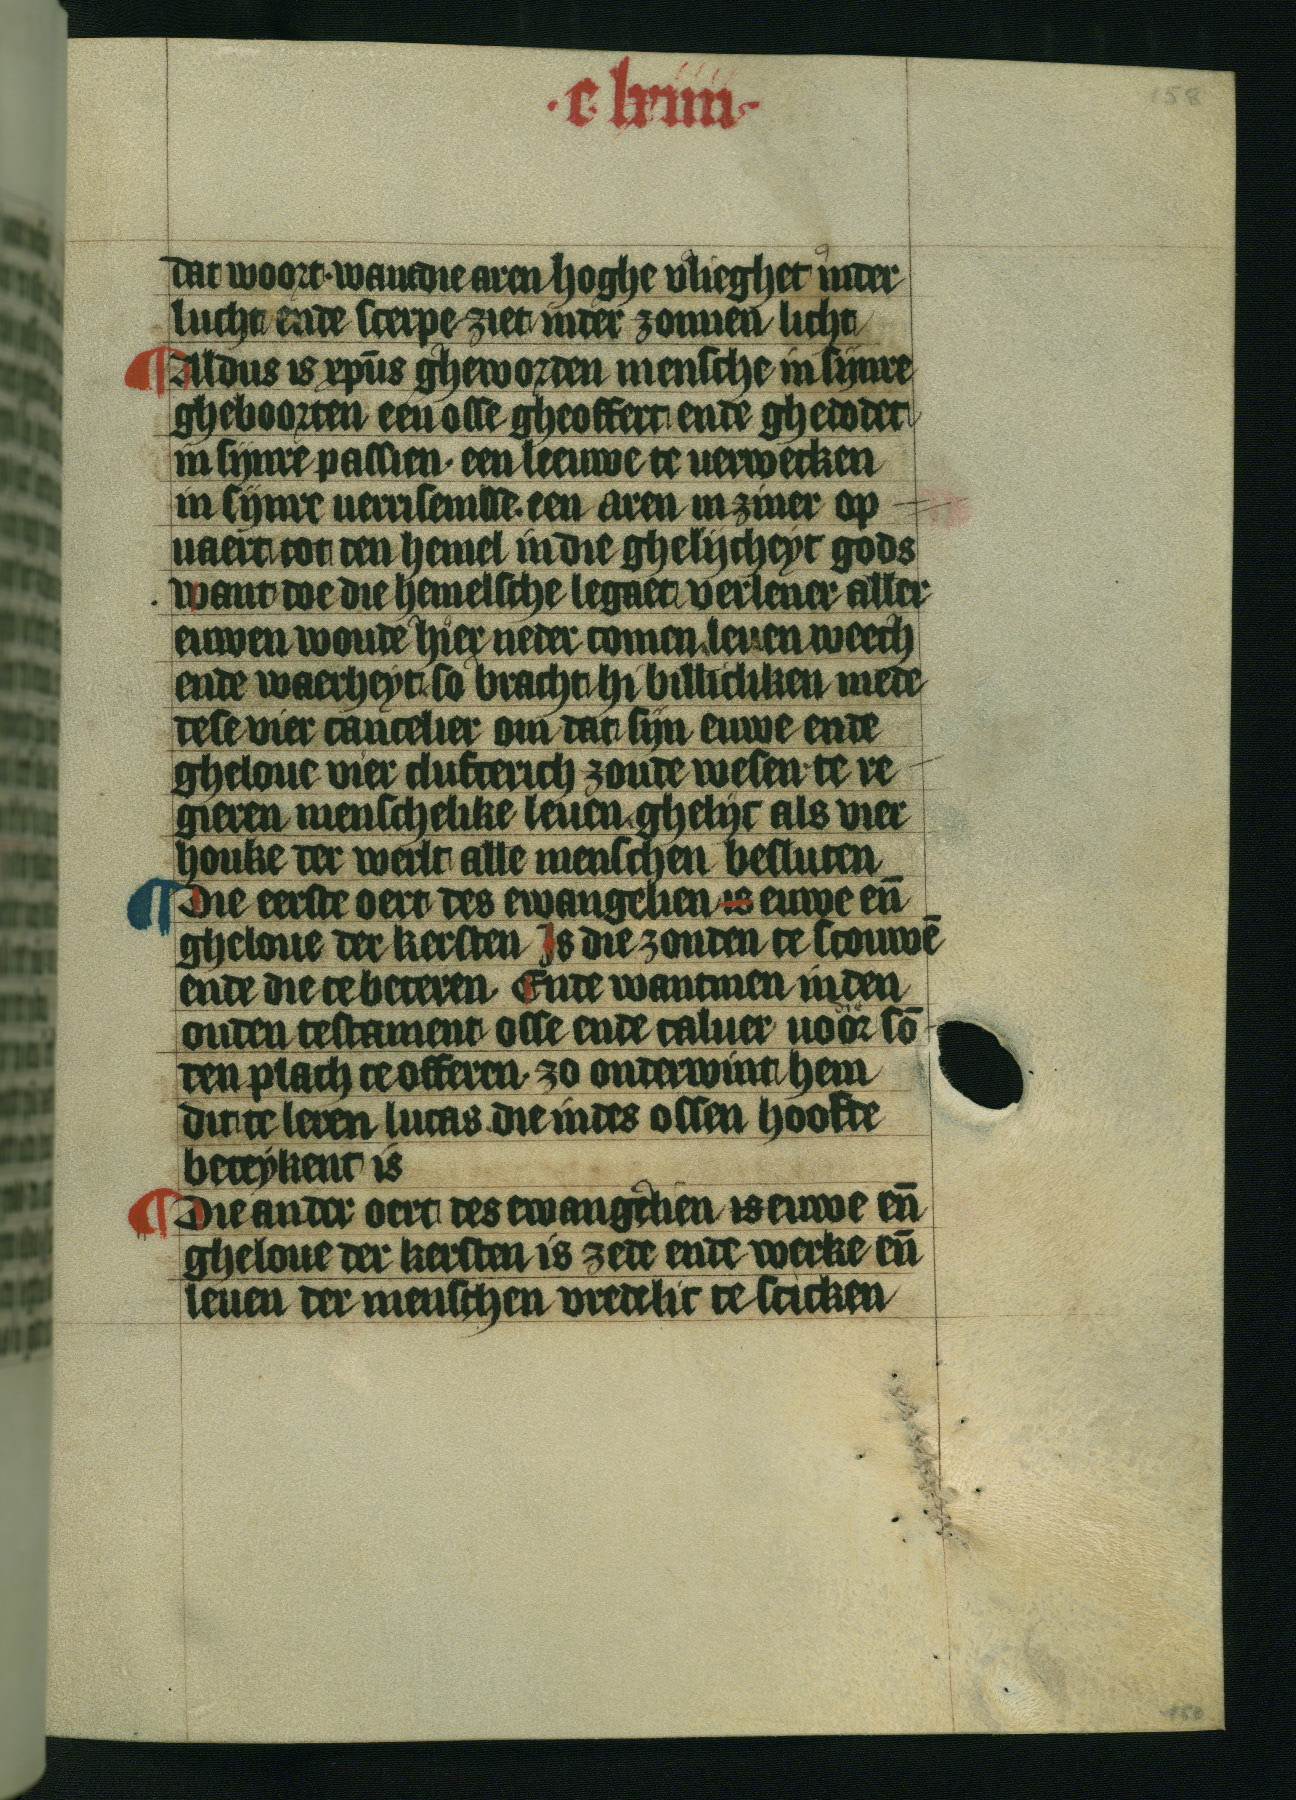 ·c· lxiiii·
158
dat woort· want die aren hoghe vlieghet inder
lucht ende scerpe ziet inder zonnen licht
¶ Aldus is xp̄us gheworden mensche in sijnre
gheboorten een osse gheoffert ende ghedodet
in sijnre passien· een leeuwe te uerwecken
in sijnre uerrisenisse· een aren in ziner op
uaert tot den hemel in die ghelijcheyt gods
want doe die hemelsche legaet verlener aller
euwen woude hier neder comen leuen weech
ende waerheyt so bracht hi billicliken mede
dese vier cancelier om dat sijn euwe ende
gheloue vier clufterich zoude wesen te re
gieren menschelike leuen ghelijc als vier
houke der werlt alle menschen besluten
¶ Die eerste oert des ewangelien is euwe en̄
gheloue der kersten Is die zonden te scouwē
ende die te beteren· Ende wantmen in den
ouden testament osse ende caluer uoor die sō
den plach te offeren· zo onderwint hem
dit te leren lucas die in des ossen hoofde
beteykent is
¶ Die ander oert des ewangelien is euwe en̄
gheloue der kersten is zede ende werke en̄
leuen der menschen vredelic te scicken